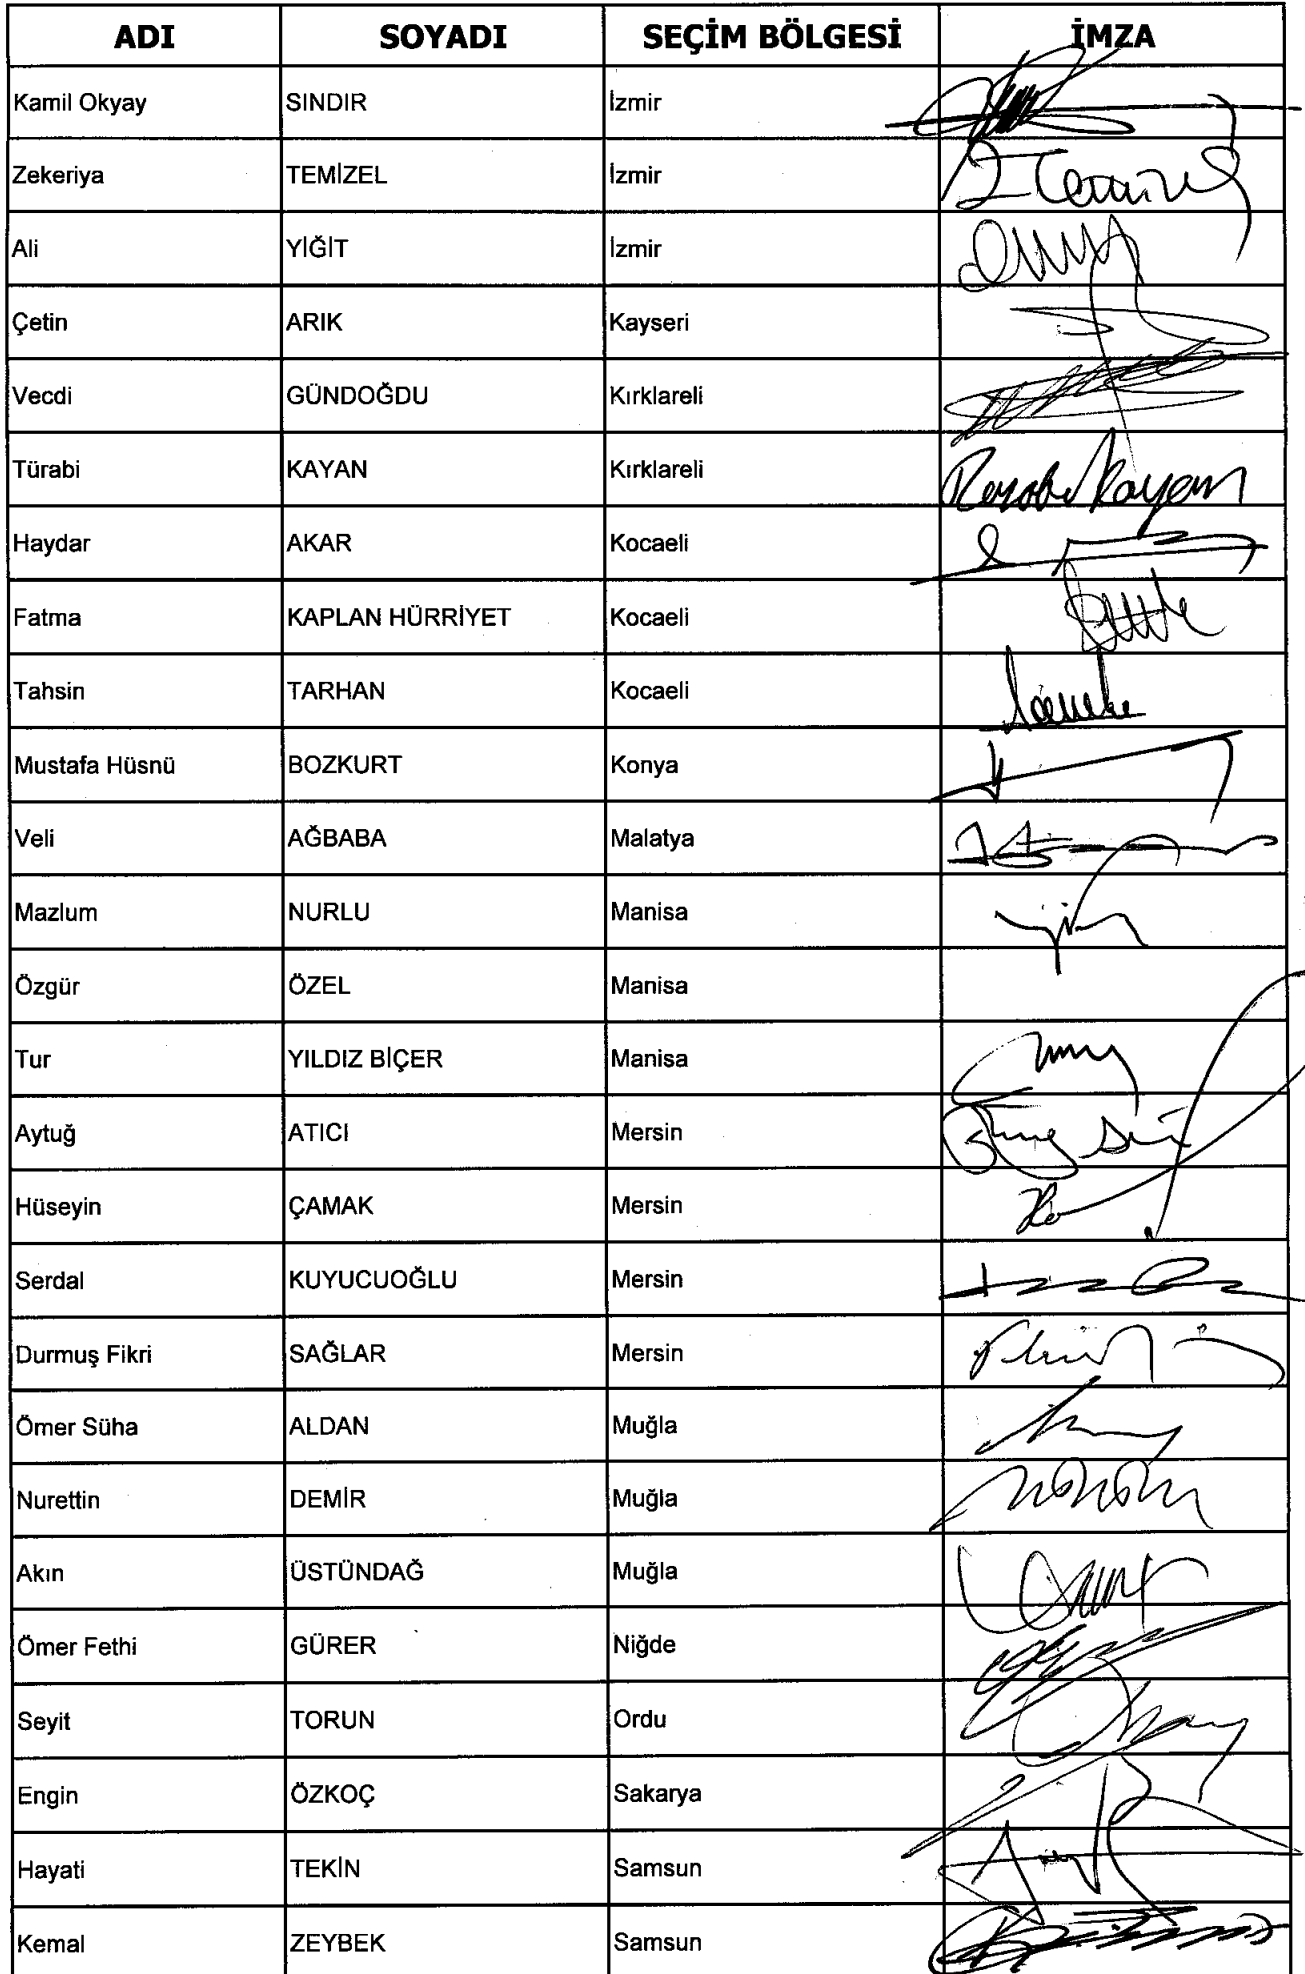 ADI SOYADI SEÇİM BÖLGESİ İMZA
Kamil Okyay SINDIR İzmir
Zekeriya TEMİZEL İzmir
Ali YİĞİT İzmir
Çetin ARIK Kayseri
Vecdi GÜNDOĞDU Kırklareli
Türabi KAYAN Kırklareli
Haydar AKAR Kocaeli
Fatma KAPLAN HÜRRİYET Kocaeli
Tahsin TARHAN Kocaeli
Mustafa Hüsnü BOZKURT Konya
Veli AĞBABA Malatya
Mazlum NURLU Manisa
Özgür ÖZEL Manisa
Tur YILDIZ BİÇER Manisa
Aytuğ ATICI Mersin
Hüseyin ÇAMAK Mersin
Serdal KUYUCUOĞLU Mersin
Durmuş Fikri SAĞLAR Mersin
Ömer Süha ALDAN Muğla
Nurettin DEMİR Muğla
Akın ÜSTÜNDAĞ Muğla
Ömer Fethi GÜRER Niğde
Seyit TORUN Ordu
Engin ÖZKOÇ Sakarya
Hayati TEKİN Samsun
Kemal ZEYBEK Samsun